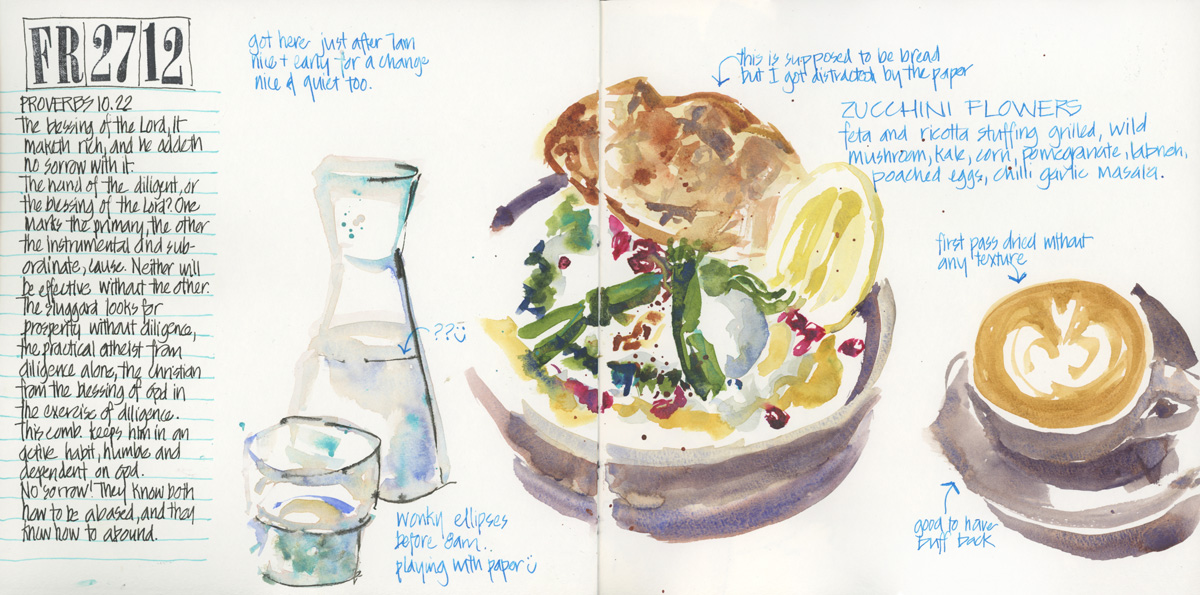 FR 27 12
PROVERBS 10.22
The blessing of the Lord, it
maketh rich, and he addeth
no sorrow with it.
The hand of the diligent, or
the blessing of the Lord? One
marks the primary, the other
the instrumental and sub-
ordinate, cause. Neither will
be effective without the other.
The sluggard looks for
prosperity without diligence,
the practical atheist from
diligence alone, the christian
from the blessing of God in
the exercise of diligence.
This comb. keeps him in an
active habit, humble and
dependent on God.
No 'sorrow'! They know both
how to be abased, and they
know how to abound.
got here just after 7am
nice + early for a change
nice & quiet too.
??
wonky ellipses
before 8am..
playing with paper
this is supposed to be bread
but I got distracted by the paper
ZUCCHINI FLOWERS
feta and ricotta stuffing grilled, wild
mushroom, kale, corn, pomegranate, labneh,
poached eggs, chilli garlic masala.
first pass dried without
any texture
good to have
buff back